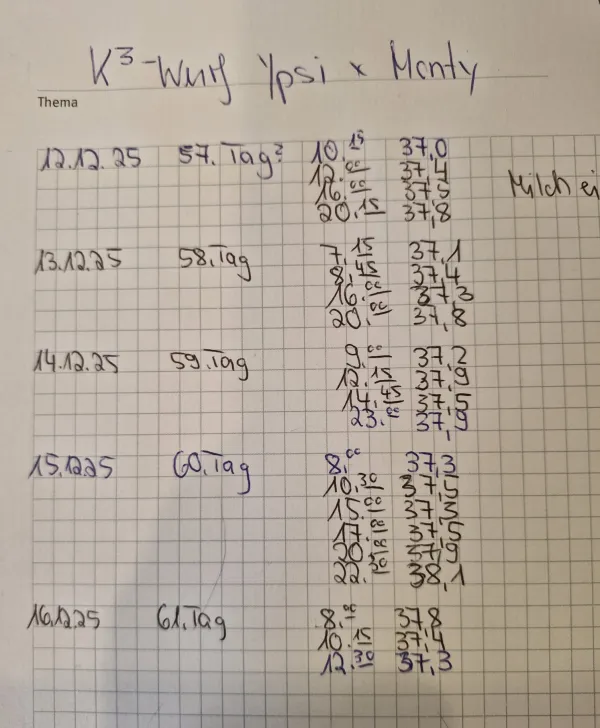 K³-Wurf Ypsi x Monty
Thema
12.12.25 57. Tag? 10.15 37,0
12.00 37,4
16.00 37,5
20.15 37,8
Milch ei
13.12.25 58. Tag 7.15 37,1
8.45 37,4
16.00 37,3
20.00 37,8
14.12.25 59. Tag 9.00 37,2
12.15 37,9
14.45 37,5
23.00 37,9
15.12.25 60. Tag 8.00 37,3
10.30 37,5
15.00 37,3
17.00 37,5
20.00 37,9
22.30 38,1
16.12.25 61. Tag 8.00 37,8
10.15 37,4
12.30 37,3